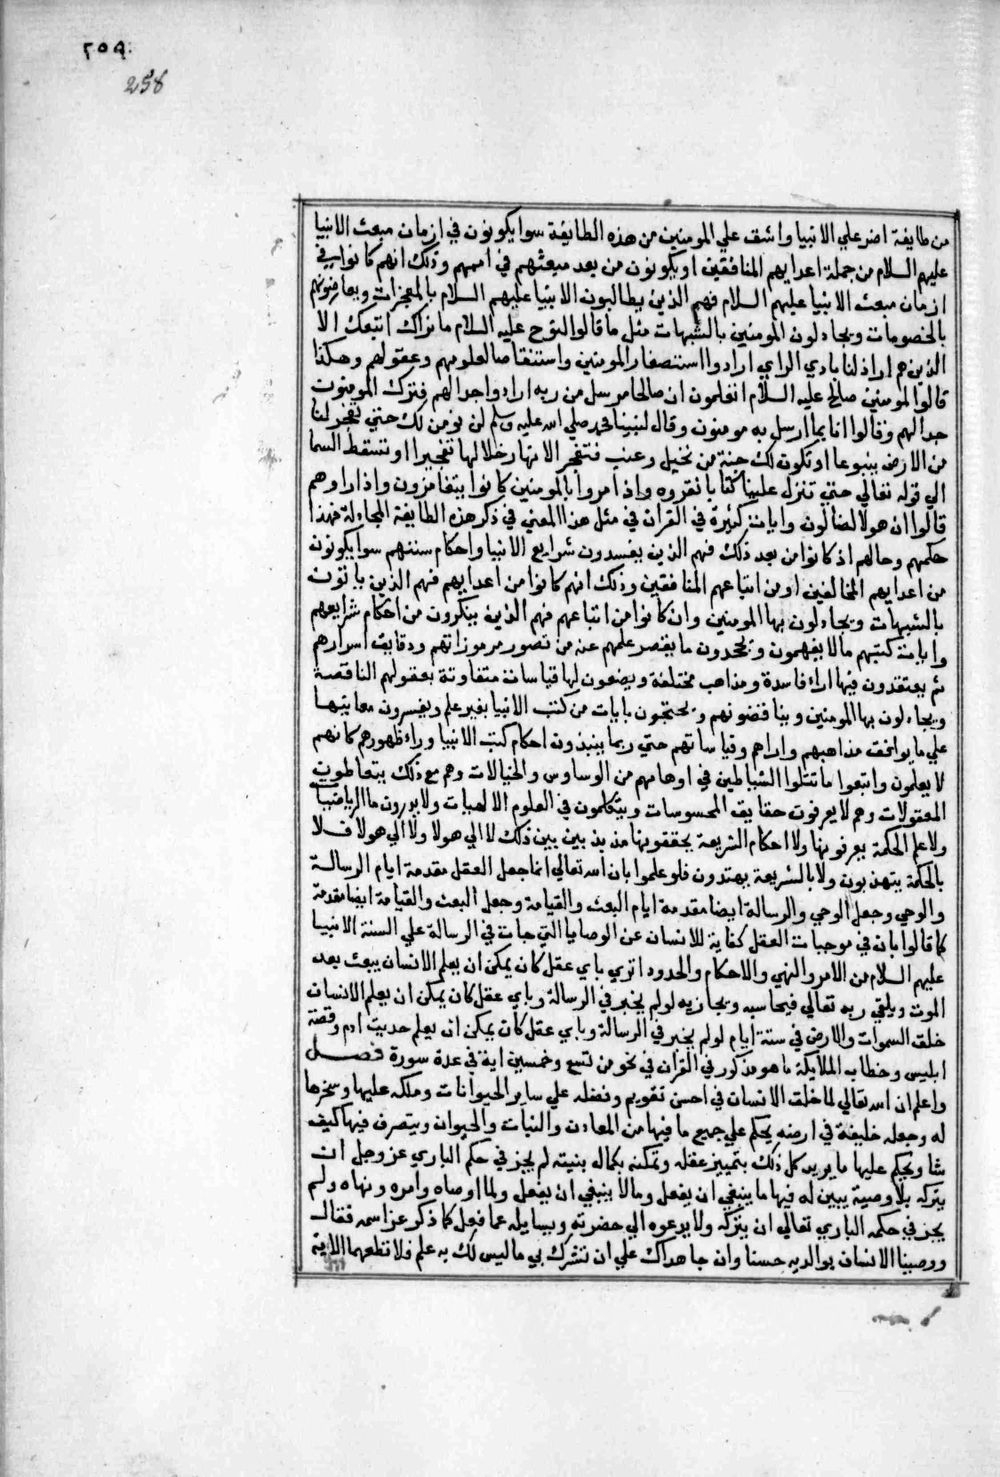 ٢٥٩
258
من طايفة اضر علي الانبيا واشق علي المومنين من هذه الطايفة سوا يكونون في ازمان مبعث الانبيا
عليهم السلام من جملة اعدايهم المنافقين او يكونون من بعد مبعثهم في اممهم وذلك انهم كانوا في
ازمان مبعث الانبيا عليهم السلام فهم الذين يطالبون الانبيا عليهم السلام بالمعجزات ويعارضونهم
بالخصومات ويجادلون المومنين بالشبهات مثل ما قالوا لنوح عليه السلام ما نراك اتبعك الا
الذين هم اراذلنا بادي الراي ارادوا استصغار المومنين واستنقاصا لعلومهم وعقولهم وهكذا
قالوا لمومنين صالح عليه السلام اتعلمون ان صالحا مرسل من ربه ارادوا جدالهم فترك المومنون
جدالهم وقالوا انا بما ارسل به مومنون وقال لنبينا محمد صلي الله عليه وسلم لن نومن لك حتي تفجر لنا
من الارض ينبوعا او تكون لك جنة من نخيل وعنب فتفجر الانهار خلالها تفجيرا او تسقط السما
الي قوله تعالي حتي تنزل علينا كتابا نقروه واذا مروا بالمومنين كانوا يتغامزون واذا راوهم
قالوا ان هولا لضالون وايات كثيرة في القران في مثل هذا المعني في ذكر هذه الطايفة المجادلة فهذا
حكمهم وحالهم اذ كانوا من بعد ذلك فهم الذين يفسدون شرايع الانبيا واحكام سننهم سوا يكونون
من اعدايهم المخالفين او من اتباعهم المنافقين وذلك انهم كانوا من اعدايهم فهم الذين ياتون
بالشبهات ويجادلون بها المومنين وان كانوا من اتباعهم فهم الذين ينكرون من احكام شرايعهم
وايات كتبهم ما لا يفهمون ويجحدون ما يقصر علمهم عنه من تصور مرموزاتهم ودقايق اسرارهم
ثم يعتقدون فيها اراء فاسدة ومذاهب مختلفة ويضعون لها قياسات متفاوتة بعقولهم الناقصة
ويجادلون بها المومنين ويناقضونهم ويحتجون بايات من كتب الانبيا بغير علم ويفسرون معانيها
علي ما يوافق مذاهبهم واراهم وقياساتهم حتي ربما ينبذون احكام كتب الانبيا وراء ظهورهم كانهم
لا يعلمون واتبعوا ما تتلوا الشياطين في اوهامهم من الوساوس والخيالات وهم مع ذلك يتعاطون
المعقولات وهم لا يعرفون حقايق المحسوسات ويتكلمون في العلوم الالهيات ولا يدرون ما الرياضيات
ولا علم الحكمة يعرفونها ولا احكام الشريعة يحققونها مذبذبين بين ذلك لا الي هولا ولا الي هولا فلا
بالحكمة يتهذبون ولا بالشريعة يهتدون فلو علموا بان الله تعالي انما جعل العقل مقدمة ايام الرسالة
والوحي وجعل الوحي والرسالة ايضا مقدمة ايام البعث والقيامة وجعل البعث والقيامة ايضا مقدمة
كما قالوا بان في موجبات العقل كفاية للانسان عن الوصايا التي جات في الرسالة علي السنة الانبيا
عليهم السلام من الامر والنهي والاحكام والحدود اتري باي عقل كان يمكن ان يعلم الانسان يبعث بعد
الموت ويلقي ربه تعالي فيحاسبه ويجازيه لو لم يخبر في الرسالة وباي عقل كان يمكن ان يعلم الانسان
خلق السموات والارض في ستة ايام لو لم يخبر في الرسالة وباي عقل كان يمكن ان يعلم حديث ادم وقصة
ابليس وخطاب الملايكة ما هو مذكور في القران في نحو من تسع وخمسين اية في عدة سورة فصل
واعلم ان الله تعالي لما خلق الانسان في احسن تقويم وفضله علي ساير الحيوانات وملكه عليها وسخرها
له وجعله خليفة في ارضه يحكم علي جميع ما فيها من المعادن والنبات والحيوان ويتصرف فيها كيف
شا ويحكم عليها ما يريد كل ذلك بتمييز عقله وتمكنه بكمال بنيته لم يجز في حكم الباري عز وجل ان
يتركه بلا وصية يبين له فيها ما ينبغي ان يفعل وما لا ينبغي ان يفعل ولما اوصاه وامره ونهاه ولم
يجز في حكمه الباري تعالي ان يتركه ولا يدعوه الي حضرته ويسايله عما فعل كما ذكر عز اسمه فقال
ووصينا الانسان بوالديه حسنا وان جاهداك علي ان تشرك بي ما ليس لك به علم فلا تطعهما الاية